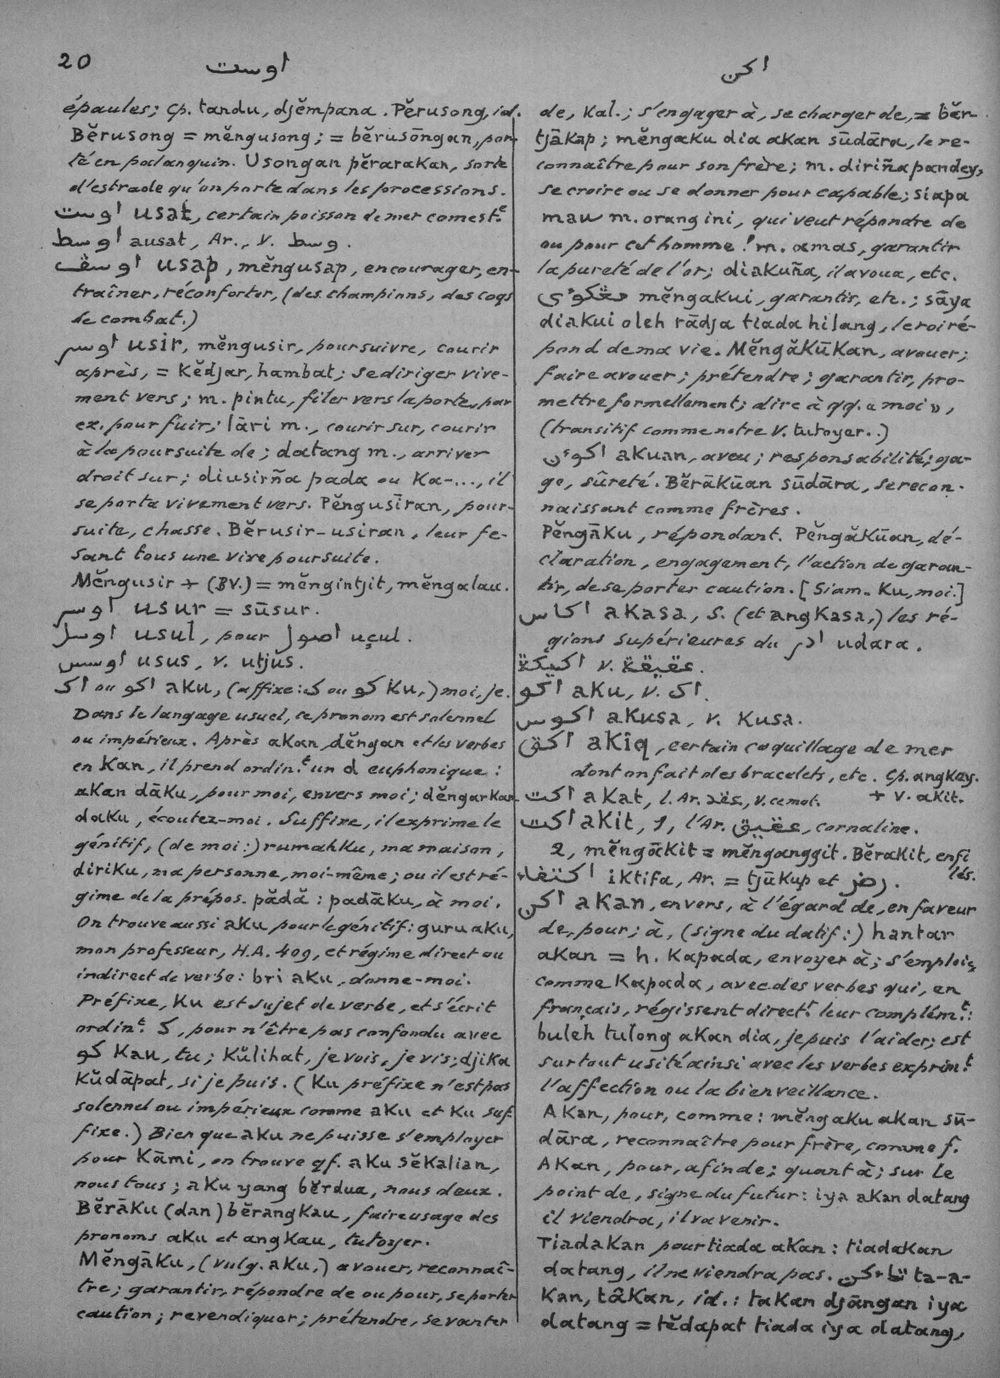 20 اوست اکن
épaules; cp. tandu, djĕmpana. Pĕrusong, id.
Bĕrusong = mĕngusong; = bĕrusōngan, por-
té en palanquin. Usongan pĕrarakan, sorte
d'estrade qu'on porte dans les processions.
اوست usat, certain poisson de mer comest.e
اوسط ausat, Ar., v. وسط.
اوسڤ usap, mĕngusap, encourager, en-
traîner, réconforter, (des champions, des coqs
de combat.)
اوسر usir, mĕngusir, poursuivre, courir
après, = kĕdjar, hambat; se diriger vive-
ment vers; m. pintu, filer vers la porte, par
ex. pour fuir; lāri m., courir sur, courir
à la poursuite de; datang m., arriver
droit sur; diusirña pada ou ka-..., il
se porta vivement vers. Pĕngusīran, pour-
suite, chasse. Bĕrusir-usiran, leur fe-
sant tous une vive poursuite.
Mĕngusir + (BV.) = mĕngintjit, mĕngalau.
اوسر usur = sūsur.
اوسل usul, pour اصول uçul.
اوسس usus, v. utjūs.
اک ou اکو aku, (affixe: ک ou کو ku,) moi, je.
Dans le langage usuel, ce pronom est solennel
ou impérieux. Après akan, dĕngan et les verbes
en kan, il prend ordin.t un d euphonique:
akan dāku, pour moi, envers moi; dĕngarkan
daku, écoutez-moi. Suffixe, il exprime le
génitif, (de moi:) rumahku, ma maison,
diriku, ma personne, moi-même; ou il est ré-
gime de la prépos. pādă: padāku, à moi.
On trouve aussi aku pour le génitif: guru aku,
mon professeur, H.A. 409, et régime direct ou
indirect de verbe: bri aku, donne-moi.
Préfixe, ku est sujet de verbe, et s'écrit
ordin.t ک, pour n'être pas confondu avec
کو kau, tu; kŭlihat, je vois, je vis; djika
kŭdāpat, si je puis. (ku préfixe n'est pas
solennel ou impérieux comme aku et ku suf-
fixe.) Bien que aku ne puisse s'employer
pour kāmi, on trouve qf. aku sĕkalian,
nous tous; aku yang bĕrdua, nous deux.
Bĕrāku (dan) bĕrangkau, faire usage des
pronoms aku et angkau, tutoyer.
Mĕngāku, (vulg. aku,) avouer, reconnaî-
tre; garantir, répondre de ou pour, se porter
caution; revendiquer; prétendre, se vanter
de, Kal.; s'engager à, se charger de, = bĕr-
tjākap; mĕngaku dia akan sūdāra, le re-
connaître pour son frère; m. diriña pandey,
se croire ou se donner pour capable; siapa
mau m. orang ini, qui veut répondre de
ou pour cet homme? m. amas, garantir
la pureté de l'or; diakuña, il avoua, etc.
مڠکوءي mĕngakui, garantir, etc.; sāya
diakui oleh rādja tiada hilang, le roi ré-
pond de ma vie. Mĕngăkūkan, avouer;
faire avouer; prétendre; garantir, pro-
mettre formellement; dire à qq. « moi »,
(transitif comme notre v. tutoyer.)
اکوءن akuan, aveu; responsabilité; ga-
ge, sûreté. Bĕrākūan sūdāra, se recon-
naissant comme frères.
Pĕngāku, répondant. Pĕngăkūan, dé-
claration, engagement, l'action de garan-
tir, de se porter caution. [Siam. ku, moi.]
اکاس akasa, S. (et angkasa,) les ré-
gions supérieures du ادر udara.
اکيکة v. عقيقة.
اکو aku, v. اک.
اکوس akusa, v. kusa.
اکق akiq, certain coquillage de mer
dont on fait des bracelets, etc. Cp. angkey.
+ v. akit.
اکت akat, l. Ar. عقد, v. ce mot.
اکت akit, 1, l'Ar. عقيق, cornaline.
2, mĕngākit = mĕnganggit. Bĕrakit, enfi
lés.
اکتفاء iktifa, Ar. = tjūkup et رض.
اکن akan, envers, à l'égard de, en faveur
de, pour; à, (signe du datif:) hantar
akan = h. kapada, envoyer à; s'emploie,
comme kapada, avec des verbes qui, en
français, régissent direct.t leur complém.t:
buleh tulong akan dia, je puis l'aider; est
surtout usité ainsi avec les verbes exprim.t
l'affection ou la bienveillance.
Akan, pour, comme: mĕngaku akan sū-
dāra, reconnaître pour frère, comme f.
Akan, pour, afin de; quant à; sur le
point de, signe du futur: iya akan datang
il viendra, il va venir.
Tiadakan pour tiada akan: tiadakan
datang, il ne viendra pas. تاءکن ta-a-
kan, tâkan, id.: takan djāngan iya
datang = tĕdapat tiada iya datang,